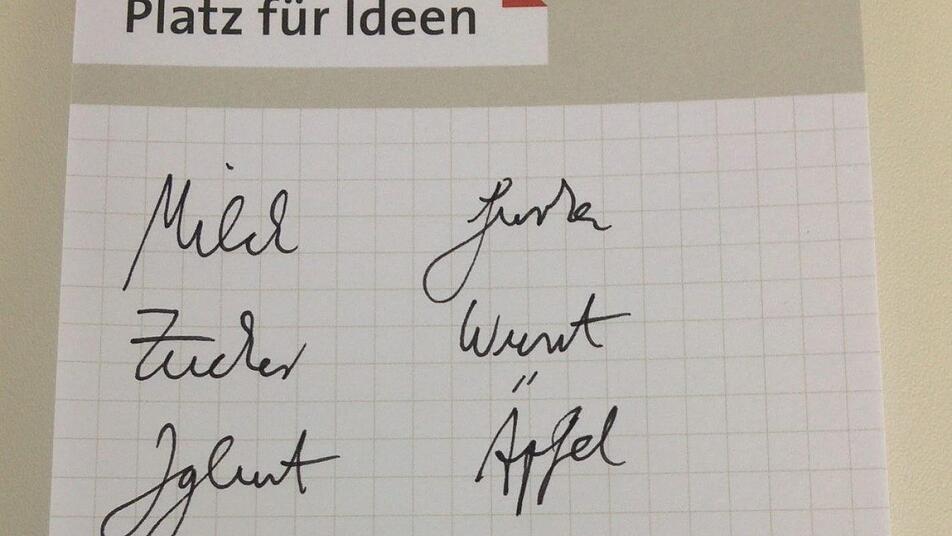 Platz für Ideen
Milch
Zucker
Joghurt
Gurke
Wurst
Äpfel